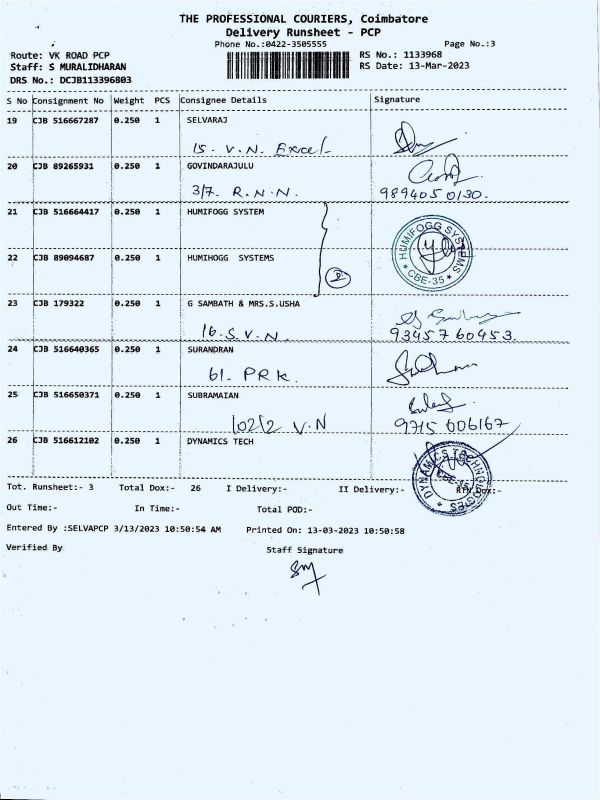 THE PROFESSIONAL COURIERS, Coimbatore
Delivery Runsheet - PCP
Phone No.:0422-3505555 Page No.:3
Route: VK ROAD PCP RS No.: 1133968
Staff: S MURALIDHARAN RS Date: 13-Mar-2023
DRS No.: DCJB113396803
S No Consignment No Weight PCS Consignee Details Signature
19 CJB 516667287 0.250 1 SELVARAJ
15. V.N. Excel
20 CJB 89265931 0.250 1 GOVINDARAJULU
3/7. R.N.N. 9894050130.
21 CJB 516664417 0.250 1 HUMIFOGG SYSTEM
HUMIFOGG SYSTEMS * CBE-35 *
22 CJB 89094687 0.250 1 HUMIHOGG SYSTEMS
2
23 CJB 179322 0.250 1 G SAMBATH & MRS.S.USHA
16. S.V.N. 9345760453.
24 CJB 516640365 0.250 1 SURANDRAN
61. PRK.
25 CJB 516650371 0.250 1 SUBRAMAIAN
102/2 V.N 9715 606167
26 CJB 516612102 0.250 1 DYNAMICS TECH
* DYNAMICS TECHNOLOGIES CBE-35
Tot. Runsheet:- 3 Total Dox:- 26 I Delivery:- II Delivery:- RTN Dox:-
Out Time:- In Time:- Total POD:-
Entered By :SELVAPCP 3/13/2023 10:50:54 AM Printed On: 13-03-2023 10:50:58
Verified By Staff Signature